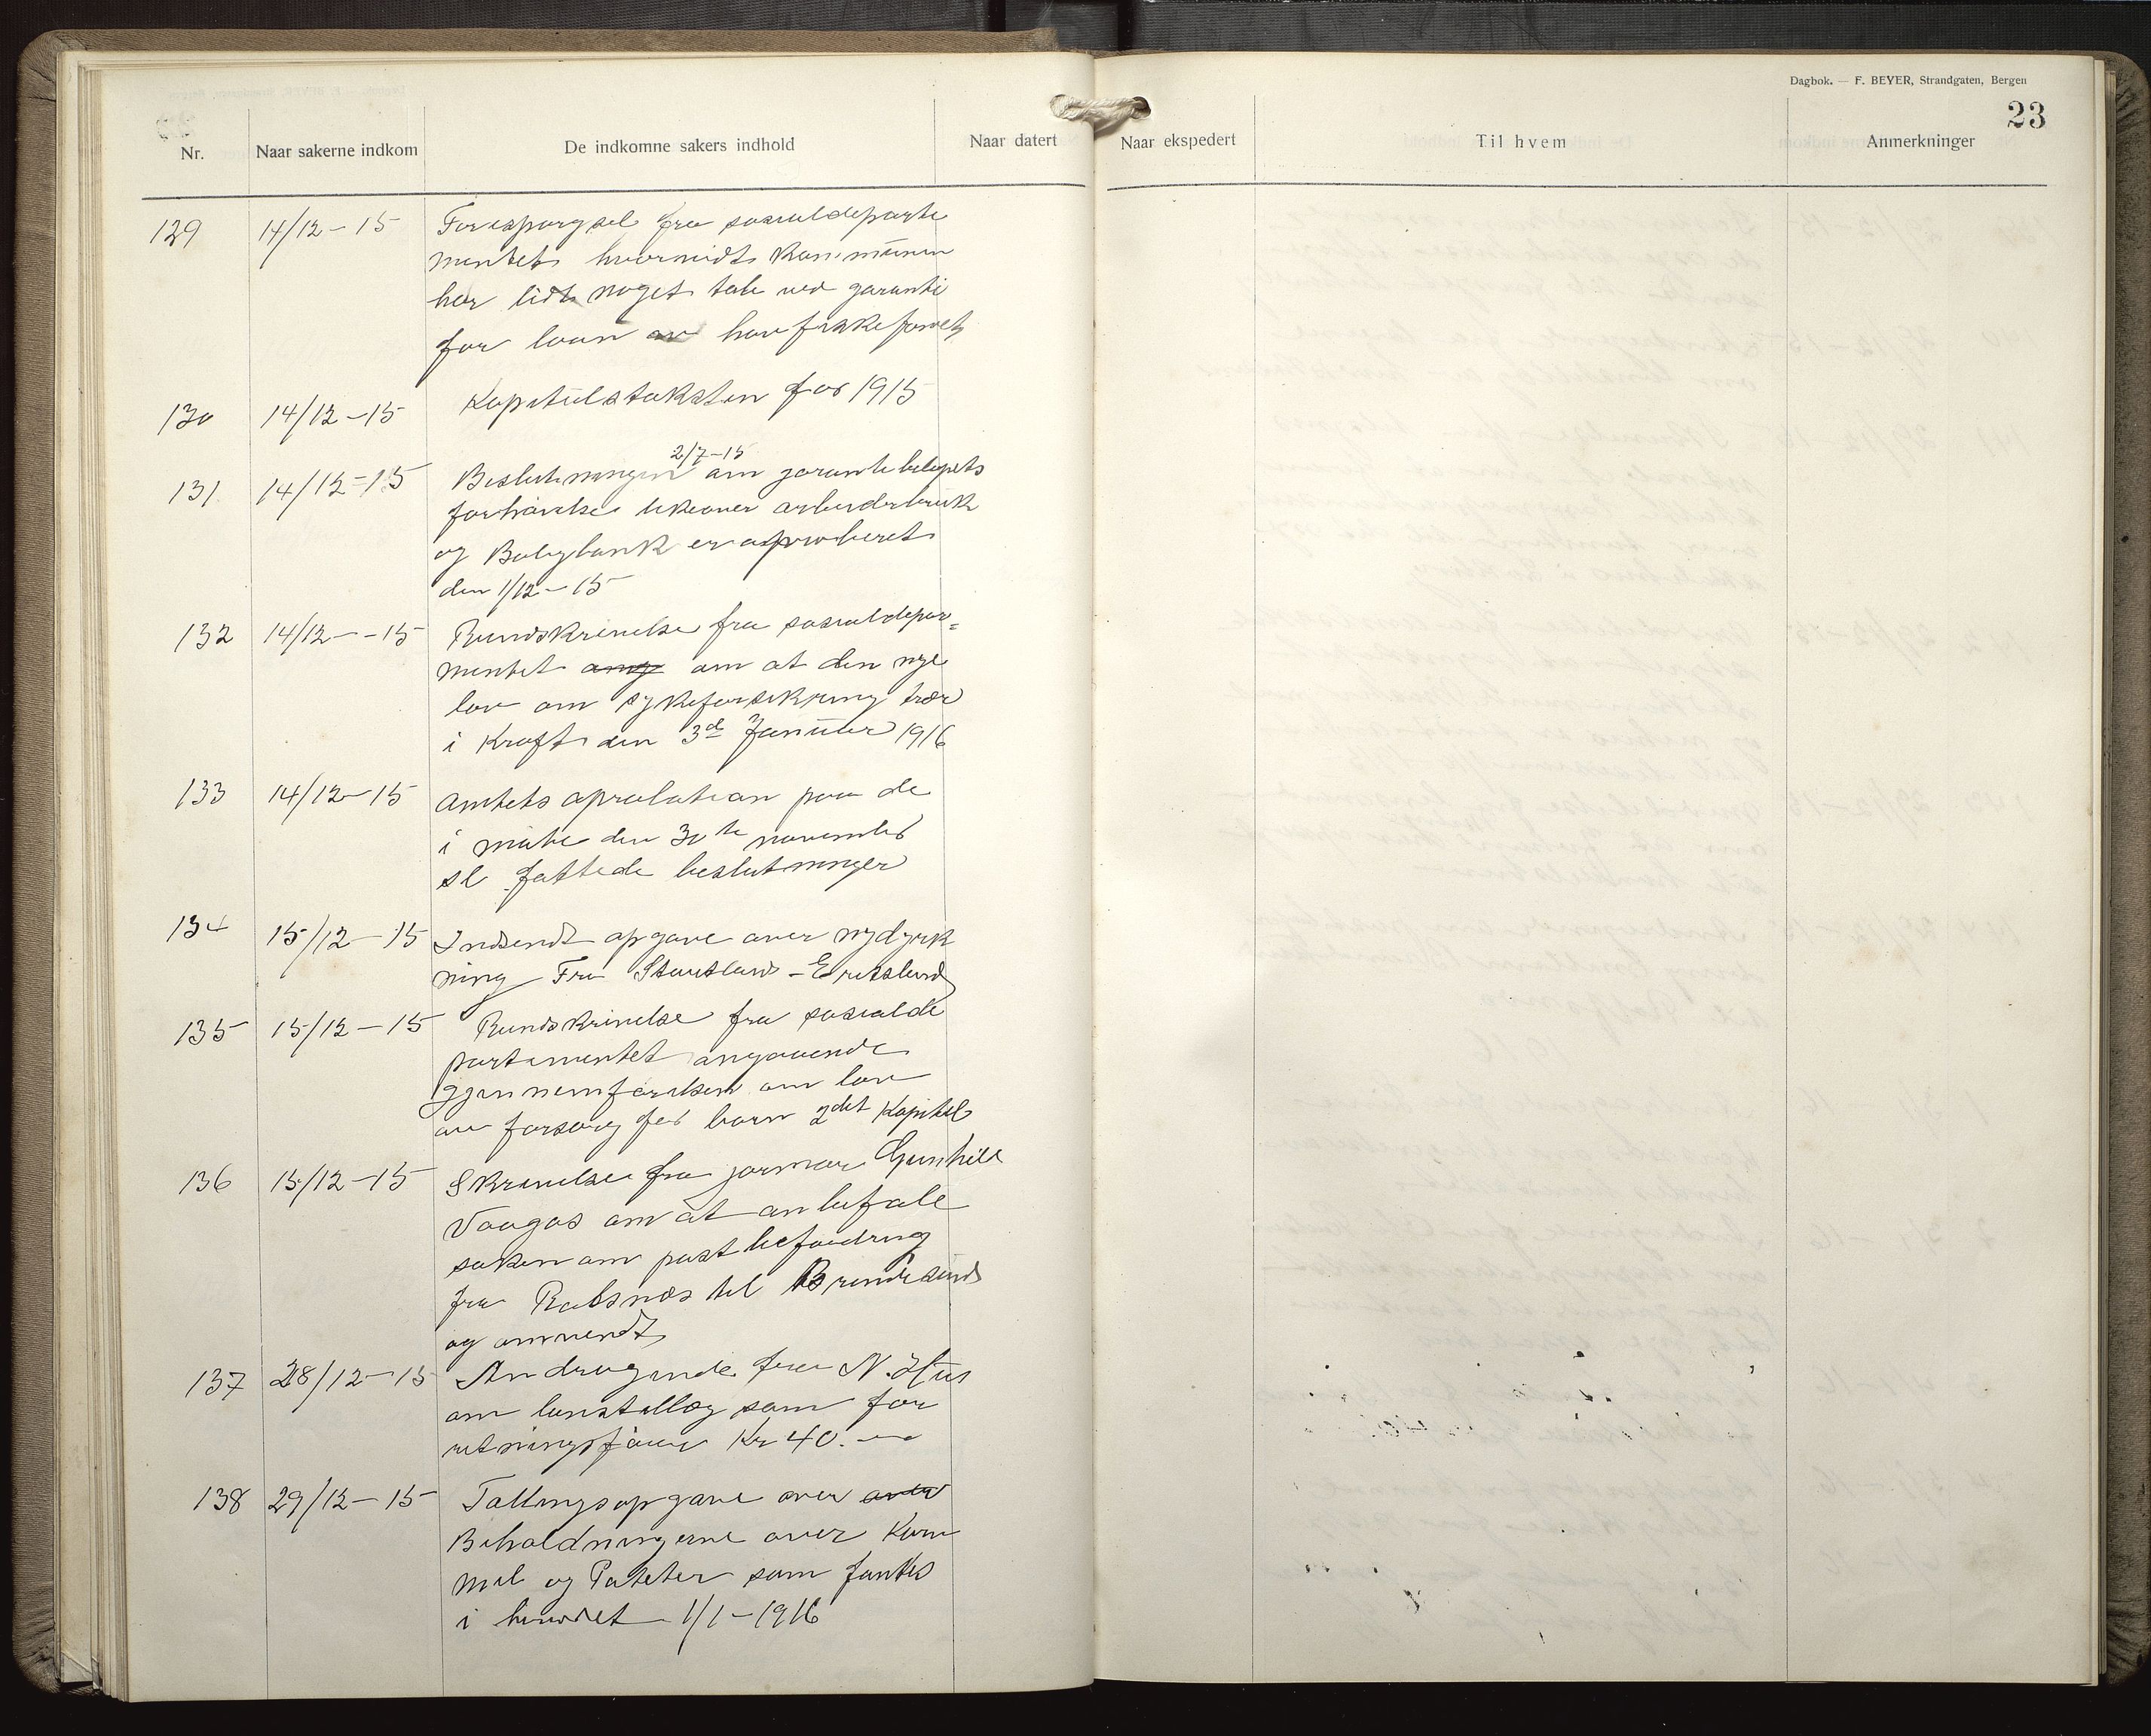 Dagbok. — F. BEYER, Strandgaten, Bergen
23
Nr. Naar sakerne indkom De indkomne sakers indhold Naar datert Naar ekspedert Til hvem Anmerkninger
129 14/12-15 Forespørgsel fra sosialdeparte
mentet hvorvidt kommunen
har lidt noget tab ved garanti
for laan av havfiskefarvet
130 14/12-15 Kapitalstaksten for 1915
2/7-15
131 14/12-15 Beslutningen om garantibeløpets
forhøielse likeover arbeiderbruk
og Boligbank er approberet
den 1/12-15
132 14/12-15 Rundskrivelse fra sosialdepar=
mentet ang om at den nye
lov om sykeforsikring trær
i kraft den 3de Januar 1916
133 14/12-15 Amtets aprobation paa de
i møte den 30te november
sl fattede beslutninger
134 15/12-15 Indsendt opgave over nydyrk
ning Fra Stautland - Eritsland
135 15/12-15 Rundskrivelse fra sosialde
partementet angaaende
gjennemførelsen om lov
av forsørg for barn 2det Kapitel
136 15/12-15 Skrivelse fra jormor Gunhild
Vaagas om at anbefale
saken om postbefordring
fra Rabsnes til Brundesund
og omvendt
137 28/12-15 Andragende fra N. Hus
om lønstillæg som for
retningsfører Kr 40.—
138 29/12-15 Tællingsopgave over over
Beholdningerne over Korn
Mel og Poteter som fantes
i herredet 1/1-1916